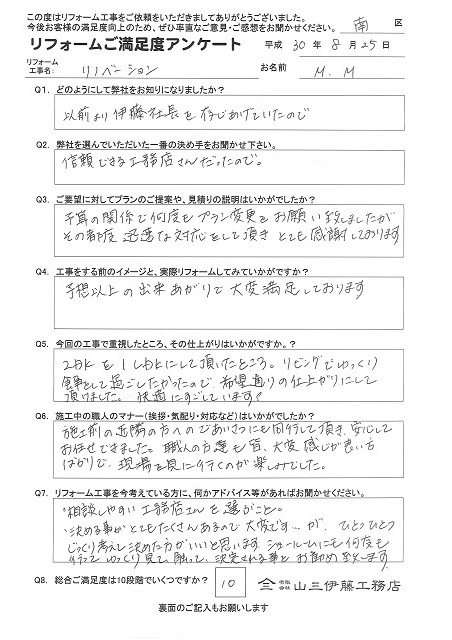 この度はリフォーム工事をご依頼をいただきましてありがとうございました。
今後お客様の満足度向上のため、ぜひ率直なご意見・ご感想をお聞かせください。 南 区
リフォームご満足度アンケート 平成 30年 8月 25日
リフォーム工事名: リノベーション お名前 M.M
Q1. どのようにして弊社をお知りになりましたか?
以前より伊藤社長を存じあげていたので
Q2. 弊社を選んでいただいた一番の決め手をお聞かせ下さい。
信頼できる工務店さんだったので。
Q3. ご要望に対してプランのご提案や、見積りの説明はいかがでしたか?
予算の関係で何度もプラン変更をお願い致しましたが
その都度 迅速な対応をして頂き とても感謝しております
Q4. 工事をする前のイメージと、実際リフォームしてみていかがですか?
予想以上の出来あがりで大変満足しております
Q5. 今回の工事で重視したところ、その仕上がりはいかがですか。?
2DKを1LDKにして頂いたところ。リビングでゆっくり
食事をして過ごしたかったので、希望通りの仕上がりにして
頂けました。快適にすごしています。
Q6. 施工中の職人のマナー(挨拶・気配り・対応など)はいかがでしたか?
施工前の近隣の方へのごあいさつにも同行して頂き、安心して
お任せできました。職人の方達も皆、大変感じが良い方
ばかりで、現場を見に行くのが楽しみでした。
Q7. リフォーム工事を今考えている方に、何かアドバイス等があればお聞かせください。
・相談しやすい工務店さんを選ぶこと。
・決める事がとてもたくさんあるので大変です…が、ひとつひとつ
じっくり考えて決めた方がいいと思います。ショールームにも何度も
行って ゆっくり見て、触って、決定される事をお勧め致します
Q8. 総合ご満足度は10段階でいくつですか? 10 有限会社 山三伊藤工務店
裏面のご記入もお願いします